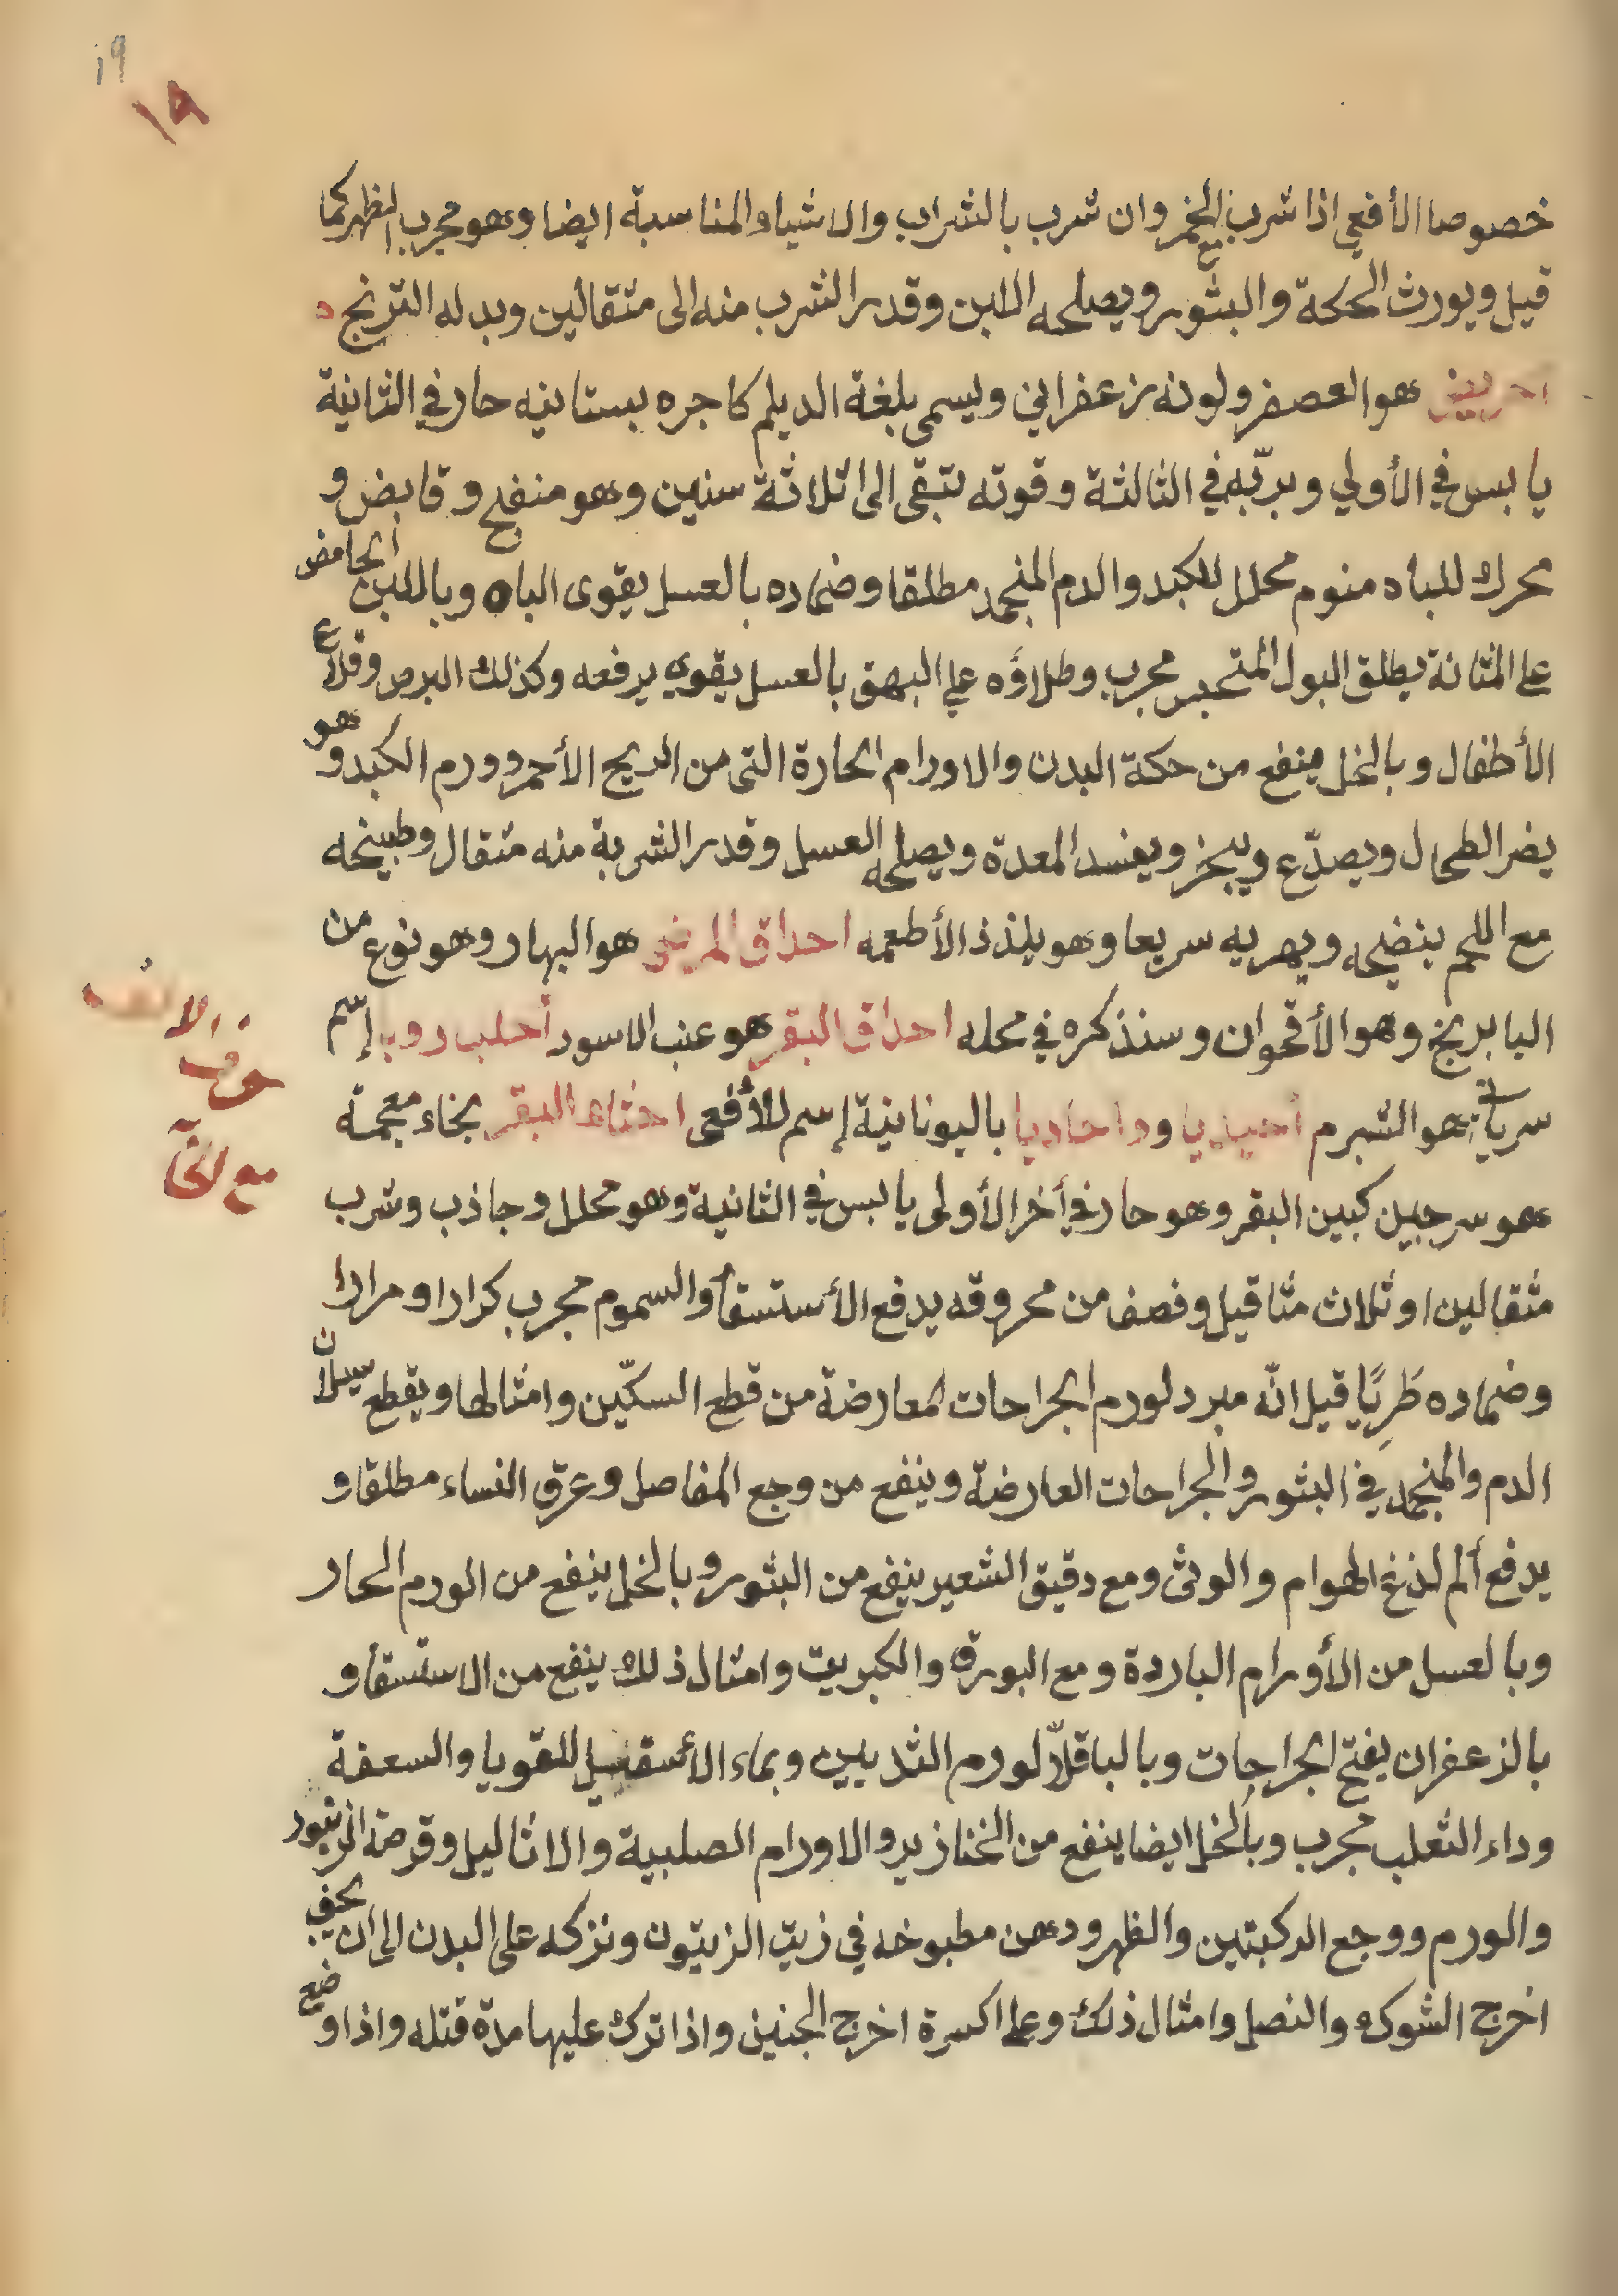 ١٩
١٩
خصوصا الأفعي اذا شرب مع الخمر وان شرب بالشراب والاشياء المناسبة ايضا وهو مجرب لنظهر كما
قيل ويورث الحكة والبثور ويصلحه اللبن وقدر الشرب منه الى مثقالين وبدله الترنج
احريض هو العصفر ولونه زعفراني ويسمى بلغة الديلم كاجره بستانيه حار في الثانية
يابس في الأولي وبرّيه في الثالثة وقوته تبقى الى ثلاثة سنين وهو منفج وقابض و
محرك للباه منوم محلل للكبد والدم المنجمد مطلقا وضماده بالعسل يقوى الباه وباللبن الحامض
على المثانة يطلق البول المتحبس مجرب وطلاؤه علي البهق بالعسل يقوي يرفعه وكذلك البرص وقلاع
الأطفال وبالخل ينفع من حكة البدن والاورام الحارة التى من الريح الأحمر وورم الكبد وهو
يضر الطحال ويصدّع ويبخر ويفسد المعدة ويصلحه العسل وقدر الشربة منه مثقال وطبيخه
مع اللحم ينضجه ويهريه سريعا وهو يلذذ الأطعمه احداق المرضى هو البهار وهو نوع من
البابريخ وهو الأقحوان وسنذكره في محله احداق البقر هو عنب الاسود أحلب روبا إسم
سريانى هو الشبرم أحيديا وداحاديا باليونانية إسم للأفعى احثاء البقر بخاء معجمة
حرف الالف
مع الخآ
هو سرجين كبين البقر وهو حار في أخر الأولى يابس في الثانية وهو محلل وجاذب وشرب
مثقالين او ثلاث مثاقيل ونصف من محروقه يدفع الأستسقآ والسموم مجرب كرارا ومرارا
وضماده طَرِيًا قيل انّه مبرد لورم الجراحات لمعارضة من قطع السكّين وامثالها ويقطع سيلان
الدم والمنجمد في البثور والجراحات العارضة وينفع من وجع المفاصل وعرق النساء مطلقا و
يدفع ألم لذغ الهوام والوثى ومع دقيق الشعير ينفع من البثور وبالخل ينفع من الورم الحار
وبالعسل من الأورام الباردة ومع البورق والكبريت وامثال ذلك ينفع من الاستسقا و
بالزعفران يفتح الجراحات وبالباقلّا لورم الثديين وبماء الأسقيل للقوبا والسعفة
وداء الثعلب مجرب وبالخل ايضا ينفع من الخنازير والاورام الصلبية والاثاليل وقرصة الزنبور
والورم ووجع الركبتين والظهر ودهن مطبوخه في زيت الزيتون ونزكه على البدن الى ان يجف
اخرج الشوك والنصل وامثال ذلك وعلى اكسرة اخرج الجنين واذا ترك عليها مدة قتله واذا وضع